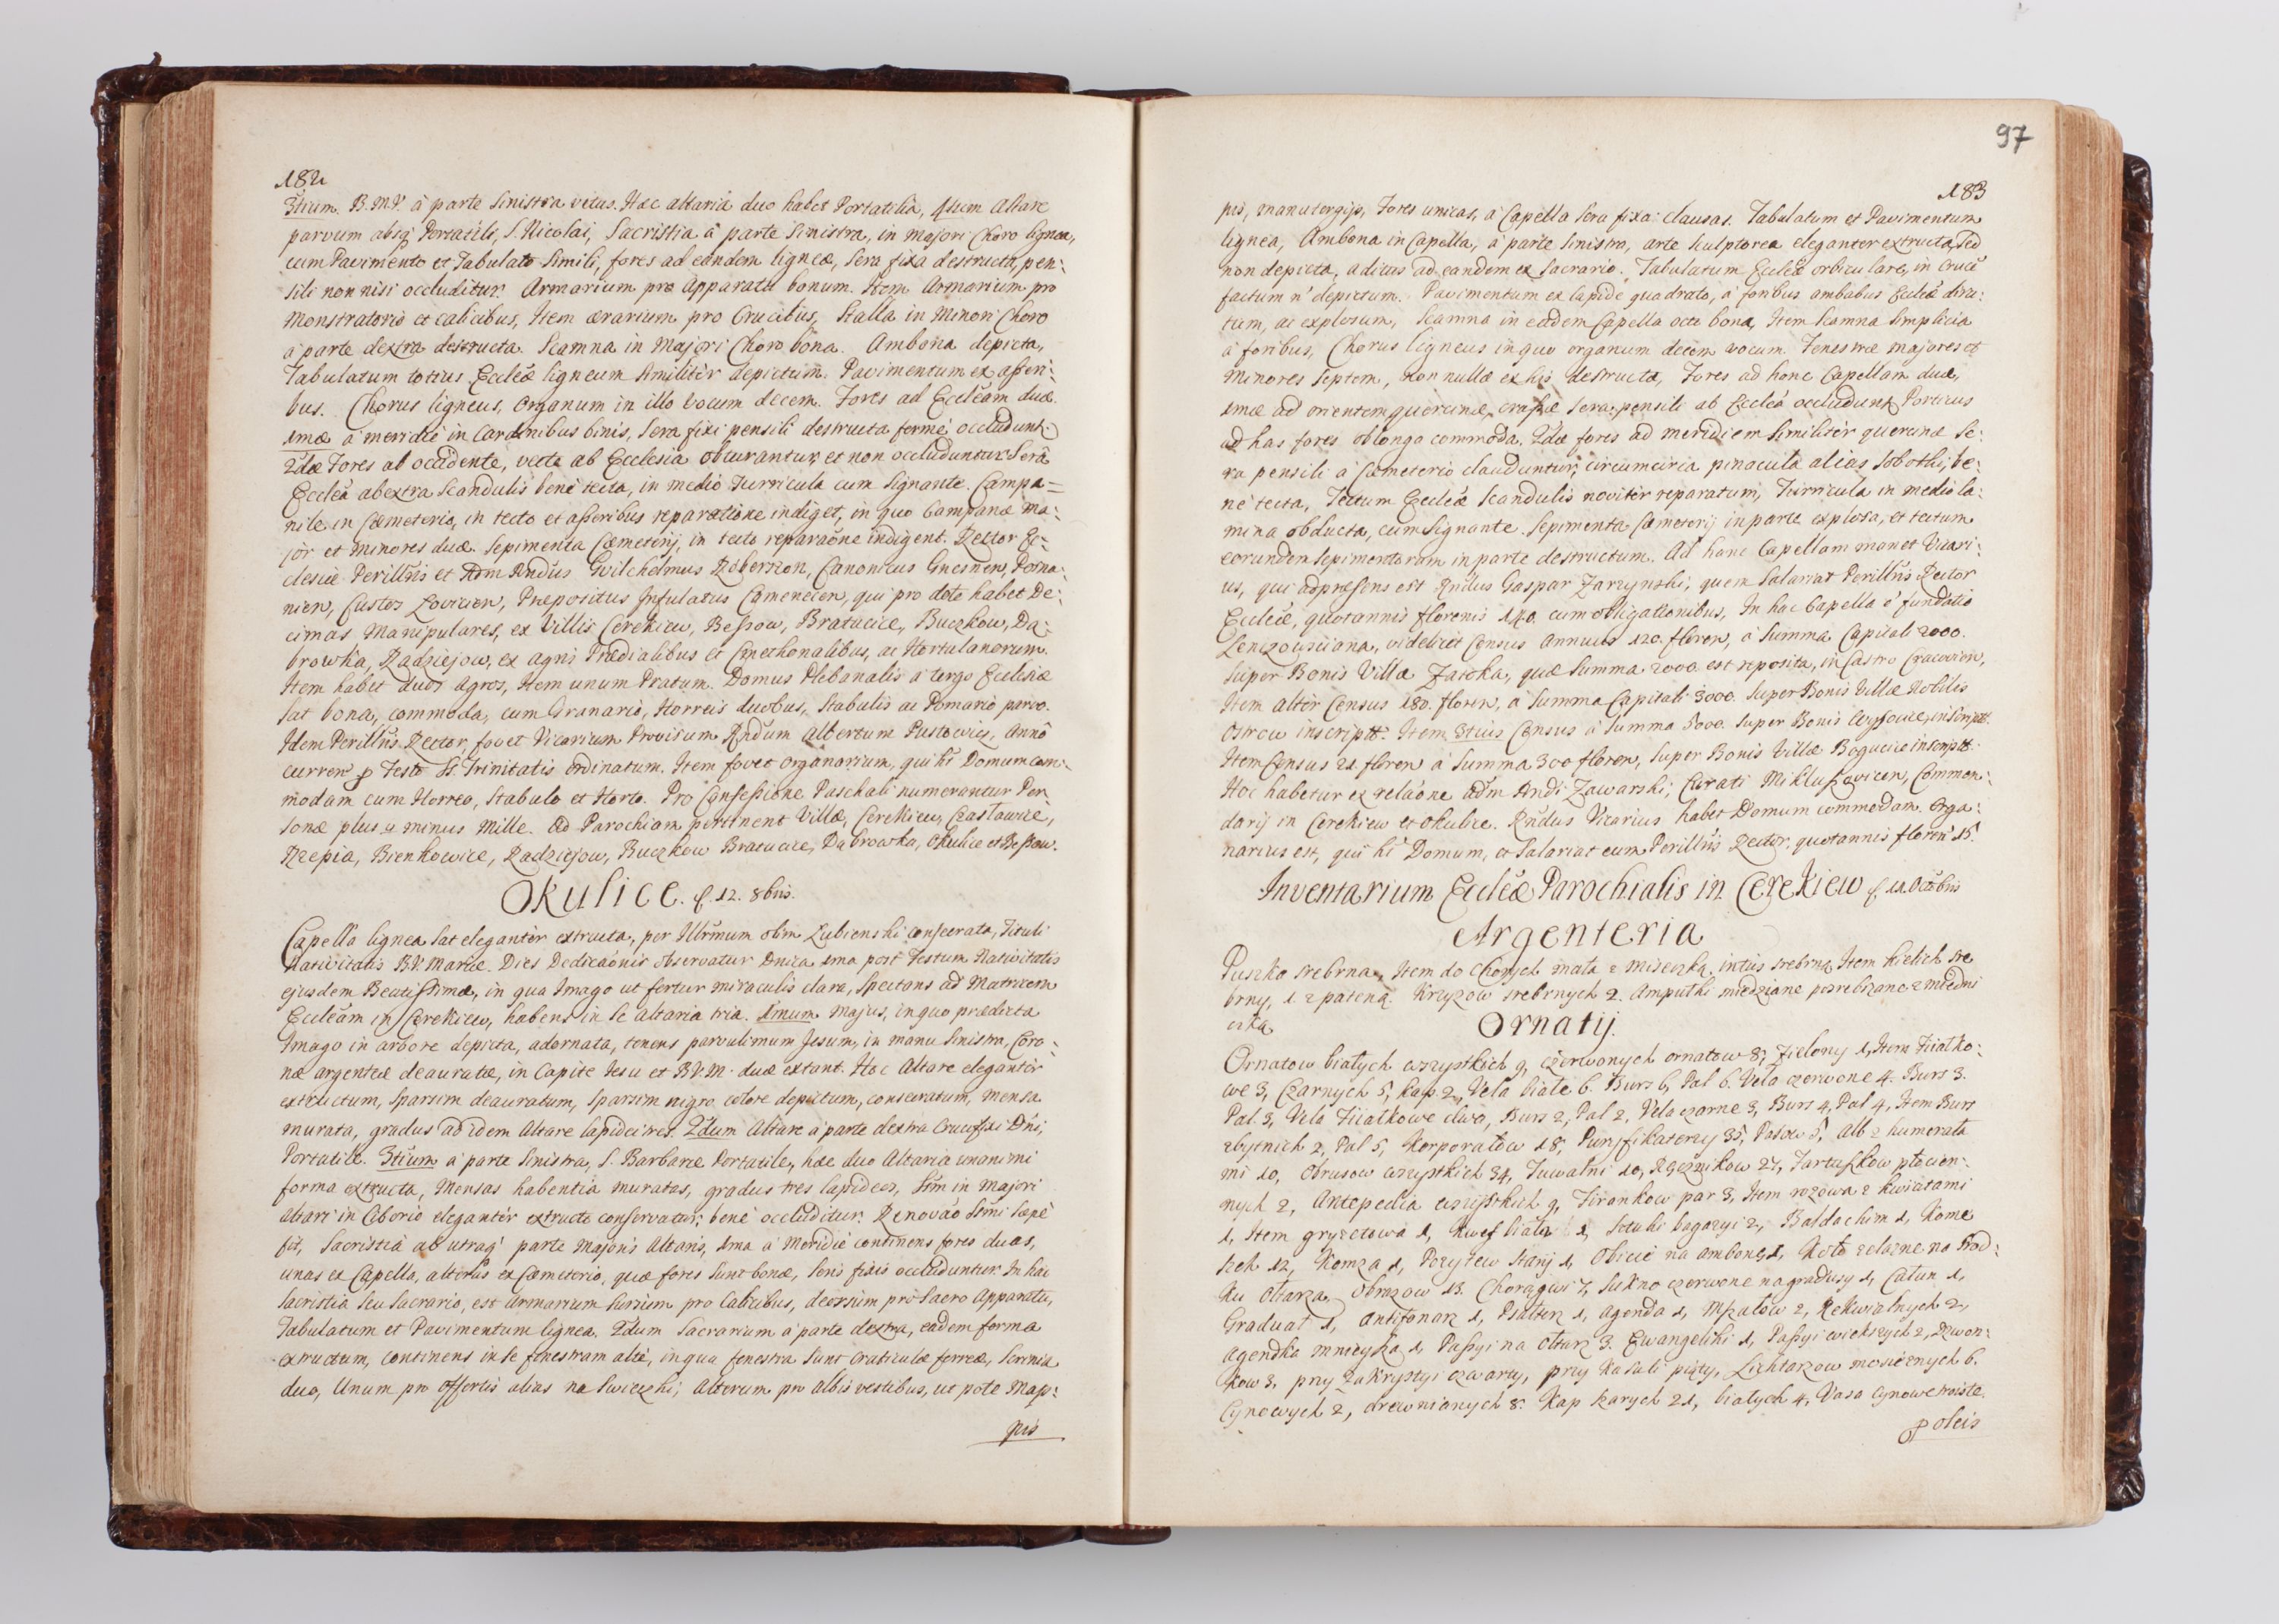 182
3tium. B.M.V. à parte Sinistra vetus. Hæc altaria duo habet Portatilia, 4tum Altare
parvum absq; Portatili, S. Nicolai, Sacristia à parte Sinistra, in majori Choro lignea,
cum Pavimento et Tabulato Simili, fores ad eandem ligneæ, Sera fixa destructa, pen:
sili non nisi occluditur. Armarium pro Apparatu bonum. Item Armarium pro
Monstratorio et calicibus, Item ærarium pro Crucibus, Stalla in Minori Choro
à parte dextra destructa. Scamna in Majori Choro bona. Ambona depicta,
Tabulatum totius Eccleæ ligneum Similitèr depictum. Pavimentum ex asseri:
bus. Chorus ligneus, Organum in illo vocum decem. Fores ad Eccleam duæ.
1mæ à meridie in Cardinibus binis, Sera fixi pensili destructa fermè occludunt:
2dæ Fores ab occidente, vecte ab Ecclesia obturantur et non occluduntur Sera
Ecclea ab extra Scandulis benè tecta, in medio Turricula cum Signante. Campa=
nile in Cæmeterio, in tecto et asseribus reparatione indiget, in quo Campanæ ma:
jor et minores duæ. Sepimenta Cæmeterij, in tecto reparaõne indigent. Rector Ec:
clesiæ Perillris et Adm Rndus Guilhelmus Roberson, Canonicus Gnesnen, Posna:
nien, Custos Lovicien, Præpositus Infulatus Camenecen, qui pro dote habet De:
cimas Manipulares, ex Villis Cerekiew, Bessow, Bratucice, Buczkow, Dą:
browka, Radziejow, ex agris Prædialibus et Cmethonalibus, ac Hortulanorum.
Item habet duos Agros, Item unum Pratum. Domus Plebanalis à tergo Ecclesiæ
Sat bona, commoda, cum Granario, Horreis duobus, Stabulis ac Pomario parvo.
Idem Perillris Rector, fovet Vicarium Provisum Rndum Albertum Pustowicz, Anno
curren p Festo SS. Trinitatis ordinatum. Item fovet Organarium, qui hi Domum com:
modam cum Horreo, Stabulo et Horto. Pro Confessione Paschali numerantur Per
sonæ plus minus Mille. Ad Parochiam pertinent Villæ, Cerekiew, Czastawice,
Rzepia, Bienkowice, Radziejow, Buczkow Bratucice, Dąbrowka, Okulice et Bessow.
Okulice. f. 12. 8bris.
Capella lignea Sat elegantèr extructa, per Illrmum olim Lubienski consecrata, Tituli
Nativitatis B.V. Mariæ. Dies Dedicaõnis observatur Dnica 1ma post Festum Nativitatis
ejusdem Beatissimæ, in qua Imago ut fertur miraculis clara, Spectans ad Matricem
Eccleam in Cerekiew, habens in se Altaria tria. 1mum Majus, in quo prædicta
Imago in arbore depicta, adornata, tenens parvulimum Jesum, in manu Sinistra, Coro:
næ argenteæ deauratæ, in Capite Jesu et B.V.M. duæ extant. Hoc Altare elegantèr
extructum, Sparsim deauratum, Sparsim nigro colore depictum, consecratum, mensa
murata, gradus ad idem Altare lapidei tres. 2dum Altare à parte dextra Crucifixi Dni,
Portatile. 3tium à parte Sinistra, S. Barbaræ Portatile, hæc duo Altaria unanimi
forma extructa, Mensas habentia muratas, gradus tres lapideos, SSm in majori
altari in Ciborio elegantèr extructo conservatur, benè occluditur. Renovaõ SSmi Sæpè
fit, Sacristia ab utraq; parte Majoris Altaris, 1ma à Meridie continens fores duas,
unas ex Capella, alteras ex Cæmeterio, quæ fores Sunt bonæ, Seris fixis occluduntur. In hac
Sacristia Seu Sacrario, est armarium Sursum pro Calicibus, deorsum pro Sacro Apparatu,
Tabulatum et Pavimentum lignea. 2dum Sacrarium à parte dextra, eadem forma
extructum, continens in se fenestram altè, in qua fenestra Sunt craticulæ ferreæ, Scrinia
duo, Unum pro offertis alias na Swieczki; Alterum pro albis vestibus, ut pote Map:
pis
97
183
pis, manutergijs, Fores unicas, à Capella Sera fixa clausas. Tabulatum et Pavimentum
lignea, Ambona in Capella, à parte Sinistra, arte Sculptorea elegantèr extructa, Sed
non depicta, aditus ad eandem ex Sacrario. Tabulatum Eccleæ orbiculare, in Cruce
factum n' depictum. Pavimentum ex lapide quadrato, à foribus ambabus Eccleæ diru:
tum, ac explosum, Scamna in eadem Capella octo bona, Item Scamna Simplicia
à foribus, Chorus ligneus in quo organum decem vocum. Fenestræ majores et
minores Septem, non nullæ ex his destructæ, Fores ad hanc Capellam duæ,
1mæ ad orientem quercinæ, crassæ Sera pensili ab Ecclea occludunt, Porticus
ad has fores oblonga commoda. 2dæ fores ad meridiem Similitèr quercinæ Se:
ra pensili à Cæmeterio clauduntur, circumcirca pinacula alias Sobothi, be:
ne tecta, Tectum Eccleæ Scandulis novitèr reparatum, Turricula in medio la:
mina obducta, cum Signante. Sepimenta Cæmeterij in parte explosa, et tectum
eorundem Sepimentorum in parte destructum. Ad hanc Capellam manet Vicari:
us, qui ad præsens est Rndus Gaspar Zarzynski, quem Salariat Perillris Rector
Eccleæ, quotannis florenis 140. cum obligationibus, In hac Capella e fundatio
Lenczowsciana, videlicet Census Annuus 120. floren, à Summa Capitali 2000.
Super Bonis Villæ Zatoka, quæ Summa 2000 est reposita, in Castro Cracovien,
Item altèr Census 180. floren, à Summa Capitali 3000. Super Bonis Villæ Nobilis
Ostrow inscriptt. Item 3tius Census à Summa 5000. Super Bonis inscriptt.
Item Census 21 floren à Summa 300 floren, Super Bonis Villæ Bogucice inscriptt.
Hoc habetur ex relaõne adm Rndi Zawarski, Curati Mikluszovicen, Commen:
darij in Cerekiew et Okulice. Rndus Vicarius habet Domum commodam. Orga:
narius est, qui hi Domum, et Salariat eum Perillris Rector, quotannis floren 15.
Inventarium Eccleæ Parochialis in Cerekiew f. 12. Octobris
Argenteria
Puszka srebrna, Item do Chorych mała z miseczką intùs srebrną Item kielich sre
brny, 1 z pateną. Krzyzow srebrnych 2. Ampułki miedziane posrebrzane z miedni
czką
Ornatij.
Ornatow białych wszystkich 9, czerwonych ornatow 8, Zielony 1, Item Fiałko:
we 3, Czarnych 5, kap. 2, Vela białe 6. Burs 6, Pal 6. Vela czerwone 4. Burs 3.
Pal. 3, Vela Fiiałkowe dwa, Burs 2, Pal 2, Vela czarne 3, Burs 4, Pal 4, Item Burs
zbytnich 2, Pal 5, Korporałow 18, Puryfikaterzy 35, Pasow 5, Alb z humerała
mi 10, Obrusow wszystkich 34, Tuwalni 10, Ręcznikow 27, Fartuszkow płocien:
nych 2, Antepedia wszystkich 9, Firankow par 3, Item rozowa z kwiatami
1, Item gryzetowa 1, Kwef biały 1, Sztuki bagazyi 2, Baldachim 1, Kome
zek 12, Komza 1, Pozytew Stary 1, Obicie na ambonę 1, Koło zelazne na Srod:
ku Ołtarza. Obrazow 13. Chorągwi 7, Sukno czerwone na gradusy 1, Całun 1,
Graduał 1, Antifonarz 1, Psałterz 1, Agenda 1, Mszałow 2, Rekwialnych 2,
Agendka mnieyszа 1, Passyi na Ołtarz 3. Ewangeliki 1, Passyi wiekszych 2, Dzwon:
kow 3, przy Zakrystyi czwarty, przy Kasuli piąty, Lichtarzow mosiéznych 6.
Cynowych 2, drewnianych 8. Kap szarych 21, białych 4, Vasa Cynowe troiste
p oleis